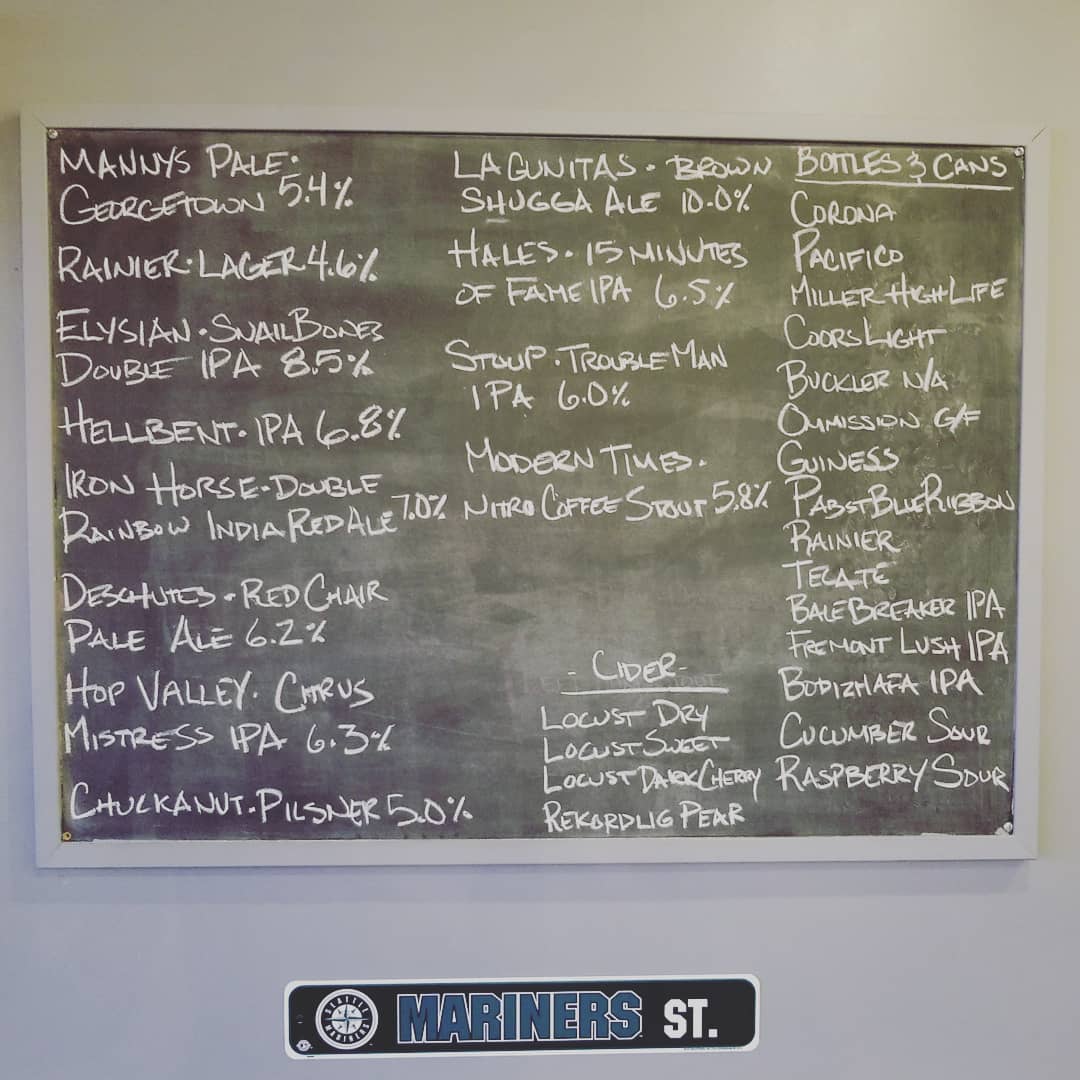 MANNYS PALE·
GEORGETOWN 5.4%
RAINIER·LAGER 4.6%
ELYSIAN·SNAILBONES
DOUBLE IPA 8.5%
HELLBENT·IPA 6.8%
IRON HORSE·DOUBLE
RAINBOW INDIA RED ALE 7.0%
DESCHUTES·RED CHAIR
PALE ALE 6.2%
HOP VALLEY·CITRUS
MISTRESS IPA 6.3%
CHUCKANUT·PILSNER 5.0%
LAGUNITAS·BROWN
SHUGGA ALE 10.0%
HALES·15 MINUTES
OF FAME IPA 6.5%
STOUP·TROUBLE MAN
IPA 6.0%
MODERN TIMES·
NITRO COFFEE STOUT 5.8%
-CIDER-
LOCUST DRY
LOCUST SWEET
LOCUST DARK CHERRY
REKORDLIG PEAR
BOTTLES & CANS
CORONA
PACIFICO
MILLER HIGH LIFE
COORS LIGHT
BUCKLER N/A
OMMISSION G/F
GUINESS
PABST BLUE RIBBON
RAINIER
TECATE
BALEBREAKER IPA
FREMONT LUSH IPA
BODIZHAFA IPA
CUCUMBER SOUR
RASPBERRY SOUR
SEATTLE
MARINERS
MARINERS ST.